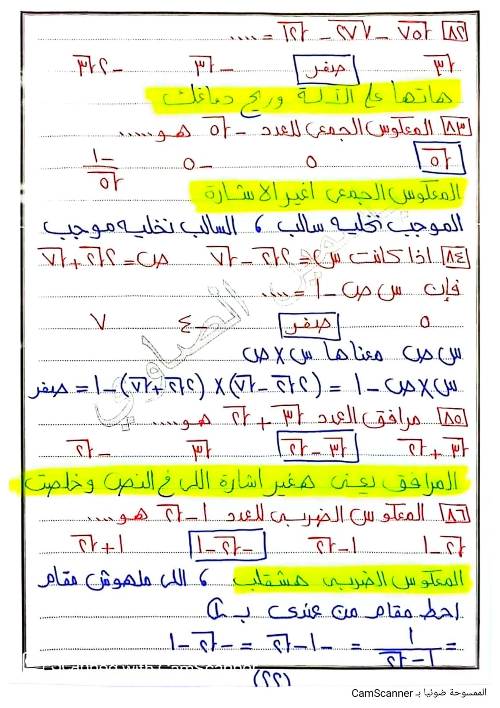 ٨٢ √٧٥ - √٢٧ - √١٢ = ....
√٣ صفر - √٣ - ٢√٣
هاتها علي الالة وريح دماغك
٨٣ المعكوس الجمعي للعدد - √٥ هو .....
√٥ ٥ - ٥ -١/√٥
المعكوس الجمعي اغير الاشارة
الموجب تخليه سالب ، السالب تخليه موجب
٨٤ اذا كانت س = ٢√٢ - √٧ ص = ٢√٢ + √٧
فإن س ص - ١ = ....
٥ صفر - ٤ ٧
س ص معناها س × ص
س × ص - ١ = (٢√٢ - √٧) × (٢√٢ + √٧) - ١ = صفر
٨٥ مرافق العدد √٣ + √٢ هو ....
√٣ + √٢ √٣ - √٢ √٣ - √٢
المرافق يعني هغير اشارة اللي في النص وخلصت
٨٦ المعكوس الضربي للعدد ١ - √٢ هو ....
√٢ - ١ ١ - √٢ - √٢ - ١ ١ + √٢
المعكوس الضربي هشقلب ، اللي ملهوش مقام
احط مقام من عندى ب ١
= ١/(١ - √٢) = - ١ - √٢ = - √٢ - ١
Scanned with CamScanner
(٢٢)
الممسوحة ضوئيا بـ CamScanner